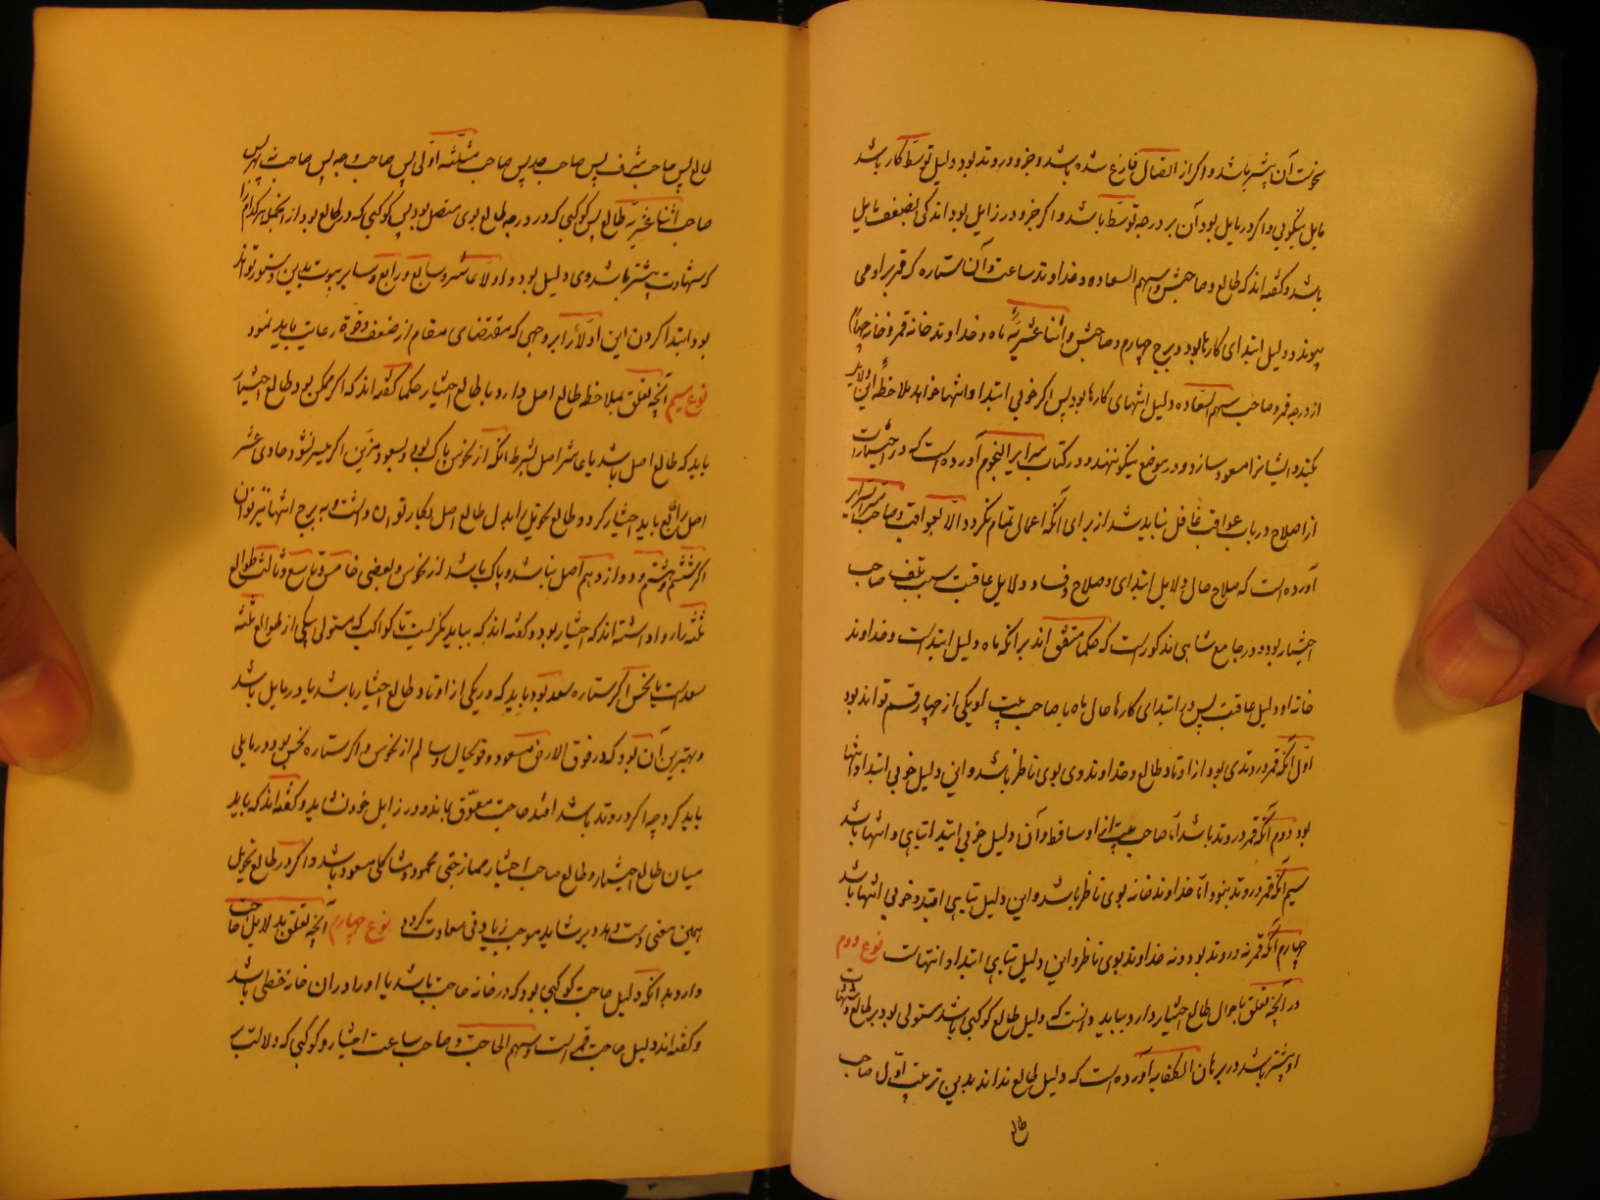 نحوست آن بیشتر باشد و اگر از اتصال فارغ شده باشد و جز و در وتد بود دلیل توسّط کار باشد
مایل بنیکویی و اگر در مایل بود آن بر درجه توسّط باشد و اگر جز و در زایل بود اندکی بضعف مایل
باشد و گفته‌اند که طالع و صاحبش و سهم السعاده و خداوند ساعت و آن ستاره که قمر بر او می
پیوندد دلیل ابتدای کارها بود و برج چهارم و صاحبش و اثنا عشریّه ماه و خداوند خانه قمر و خانه چهارم
از درجه قمر و صاحب سهم السّعاده دلیل انتهای کارها بود پس اگر خوبی ابتدا و انتها خواهد ملاحظه این دلایل
بکند و ایشانرا مسعود سازد و در موضع نیکو نهد و در کتاب سرایر النجوم آورده است که در اختیارات
از اصلاح در باب عواقب غافل نباید شد از برای آنکه اعمال تمام نگردد الّا بعواقب و صاحب اسرار
آورده است که صلاح حال دلایل ابتدای و صلاح و فساد دلایل عاقبت سبب تلف صاحب
اختیار بود و در جامع شاهی مذکور است که حکما متفق‌اند بر آنکه ماه دلیل ابتداست و خداوند
خانه او دلیل عاقبت پس در ابتدای کارها حال ماه با صاحب بیت او یکی از چهار قسم تواند بود
اوّل آنکه قمر در وتدی بود از اوتاد طالع و خداوند وی بوی ناظر باشد و این دلیل خوبی ابتدا و انتها
بود دوم آنکه قمر در وتد باشد امّا صاحب بیت از او ساقط و آن دلیل خوبی ابتدا و تباهی انتها باشد
سیم آنکه قمر در وتد نبود امّا خداوند خانه بوی ناظر باشد و این دلیل تباهی ابتدا و خوبی انتها باشد
چهارم آنکه قمر نه در وتد بود و نه خداوند بوی ناظر و این دلیل تباهی ابتدا و انتهاست نوع دوم
در آنچه تعلّق باحوال طالع اختیار دارد بباید دانست که دلیل طالع کوکبی باشد مستولی بود بر طالع و شهادت
او بیشتر باشد در برهان الکفایه آورده است که دلیل طالع نداند بدین ترتیب اوّل صاحب
طالع
طالع پس صاحب شرف پس صاحب حد پس صاحب مثلّثه اوّلی پس صاحب وجه پس صاحب نه بهر پس
صاحب اثنا عشریّه طالع پس کوکبی که در درجه طالع بوی متصل بود پس کوکبی که در طالع بود از آنجمله هر کدام
که شهادت بیشتر باشد وی دلیل بود و اولا عاشر و سابع و رابع و سایر بیوت بدین دستور تواند
بود ابتدا کردن این اولا را بر وجهی که مقتضای مقام از ضعف و قوّة رعایت باید نمود
نوع سیم آنچه تعلّق بملاحظه طالع اصل دارد با طالع اختیار حکما گفته‌اند که اگر ممکن بود طالع اختیار
باید که طالع اصل باشد یا عاشر اصل بشرط آنکه از نحوس پاک بود و بسعود مزیّن اگر میسر نشود حادی عشر
اصل را طالع باید اختیار کرد و طالع تحویل را بدل طالع اصل بکار توان داشت و به برج انتها نیز توان
اگر ششم و هشتم و دوازدهم اصل نباشد و پاک باشد از نحوس و بعضی خامس و تاسع و ثالث طوالع
ثلثه را روا داشته‌اند که اختیار بود و گفته‌اند که بباید نگریست تا کواکب که مستولی یکی از طوالع ثلثه
سعد است یا نحس اگر ستاره سعد بود باید که در یکی از اوتاد طالع اختیار باشد یا در مایل باشد
و بهترین آن بود که در فوق الارض مسعود و قویحال و سالم از نحوس و اگر ستاره نحس بود در مایلی
باید کرد چه اگر در وتد باشد افتد حاجت معوّق بماند و در زایل خود نشاید و گفته‌اند که باید
میان طالع اختیار و طالع صاحب اختیار ممازجتی محمود و مشاکلی مسعود باشد و اگر در طالع تحویل
همین معنی دست دهد و بر شاید موجب زیادتی سعادت گردد نوع چهارم آنچه تعلّق بدلایل حاجت
دارد بدانکه دلیل حاجت کوکبی بود که در خانه حاجت باشد یا او را در آن خانه حظی باشد
و گفته‌اند دلیل حاجت قمر است و سهم الحاجت و صاحب ساعت اختیار و کوکبی که دلالتش